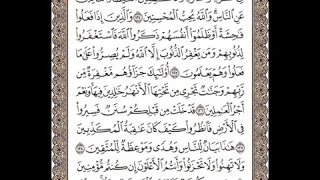 عَنِ النَّاسِ وَاللَّهُ يُحِبُّ الْمُحْسِنِينَ ١٣٤ وَالَّذِينَ إِذَا فَعَلُوا
فَاحِشَةً أَوْ ظَلَمُوا أَنْفُسَهُمْ ذَكَرُوا اللَّهَ فَاسْتَغْفَرُوا
لِذُنُوبِهِمْ وَمَنْ يَغْفِرُ الذُّنُوبَ إِلَّا اللَّهُ وَلَمْ يُصِرُّوا عَلَى مَا
فَعَلُوا وَهُمْ يَعْلَمُونَ ١٣٥ أُولَٰئِكَ جَزَاؤُهُمْ مَغْفِرَةٌ مِنْ
رَبِّهِمْ وَجَنَّاتٌ تَجْرِي مِنْ تَحْتِهَا الْأَنْهَارُ خَالِدِينَ فِيهَا وَنِعْمَ
أَجْرُ الْعَامِلِينَ ١٣٦ قَدْ خَلَتْ مِنْ قَبْلِكُمْ سُنَنٌ فَسِيرُوا
فِي الْأَرْضِ فَانْظُرُوا كَيْفَ كَانَ عَاقِبَةُ الْمُكَذِّبِينَ
١٣٧ هَٰذَا بَيَانٌ لِلنَّاسِ وَهُدًى وَمَوْعِظَةٌ لِلْمُتَّقِينَ ١٣٨
وَلَا تَهِنُوا وَلَا تَحْزَنُوا وَأَنْتُمُ الْأَعْلَوْنَ إِنْ كُنْتُمْ مُؤْمِنِينَ